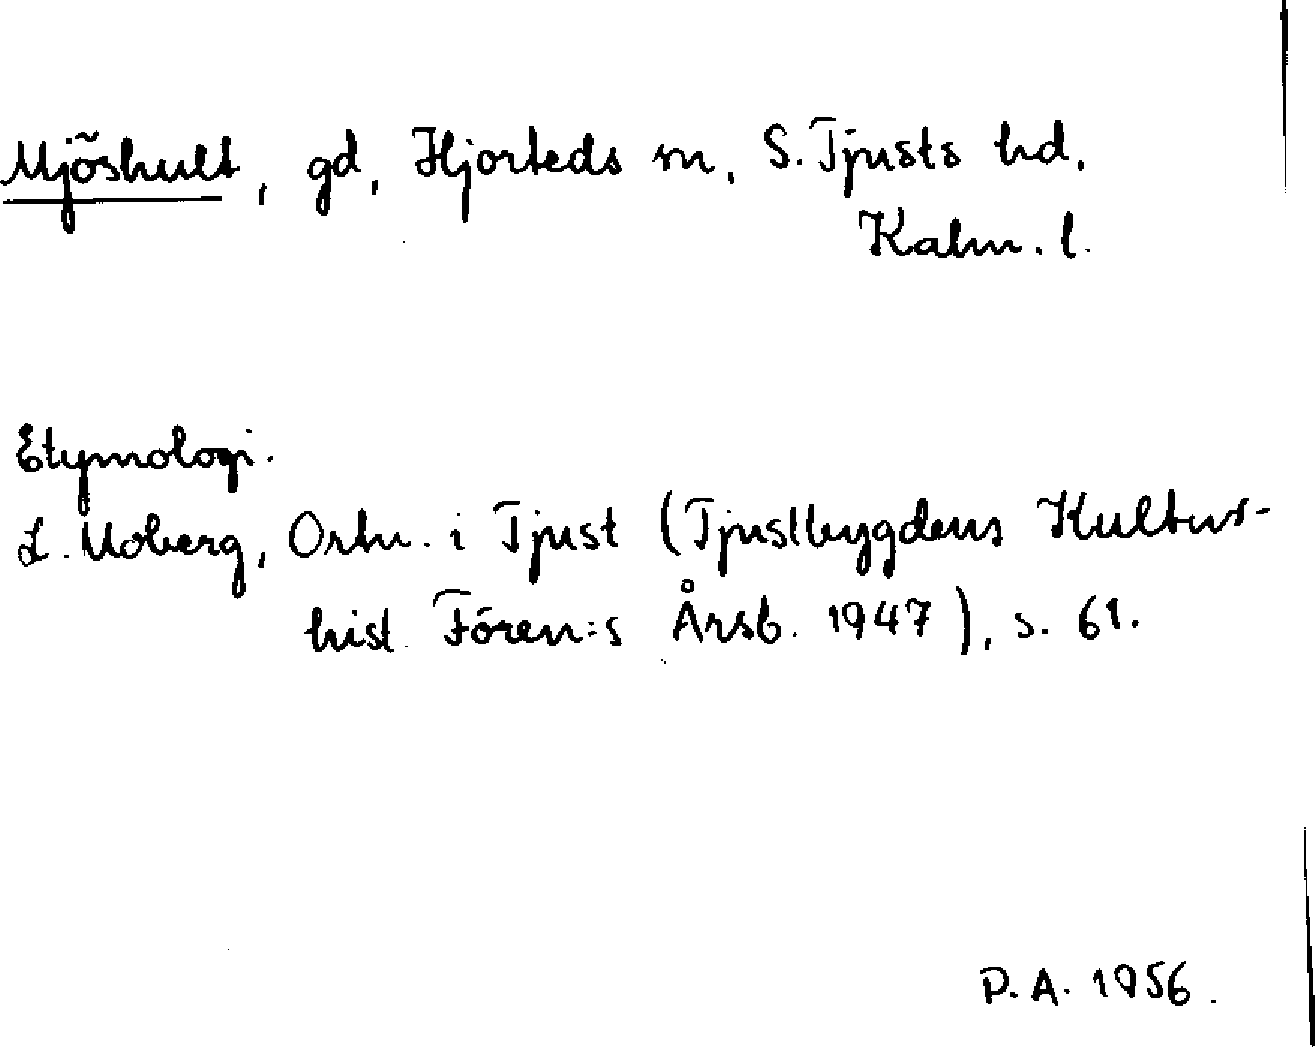 Mjöshult, gd, Hjorteds sn, S. Tjusts hd,
Kalm. l.
Etymologi.
L. Moberg, Ortn. i Tjust (Tjustbygdens Kultur-
hist. Fören:s Årsb. 1947), s. 61.
P.A. 1956.